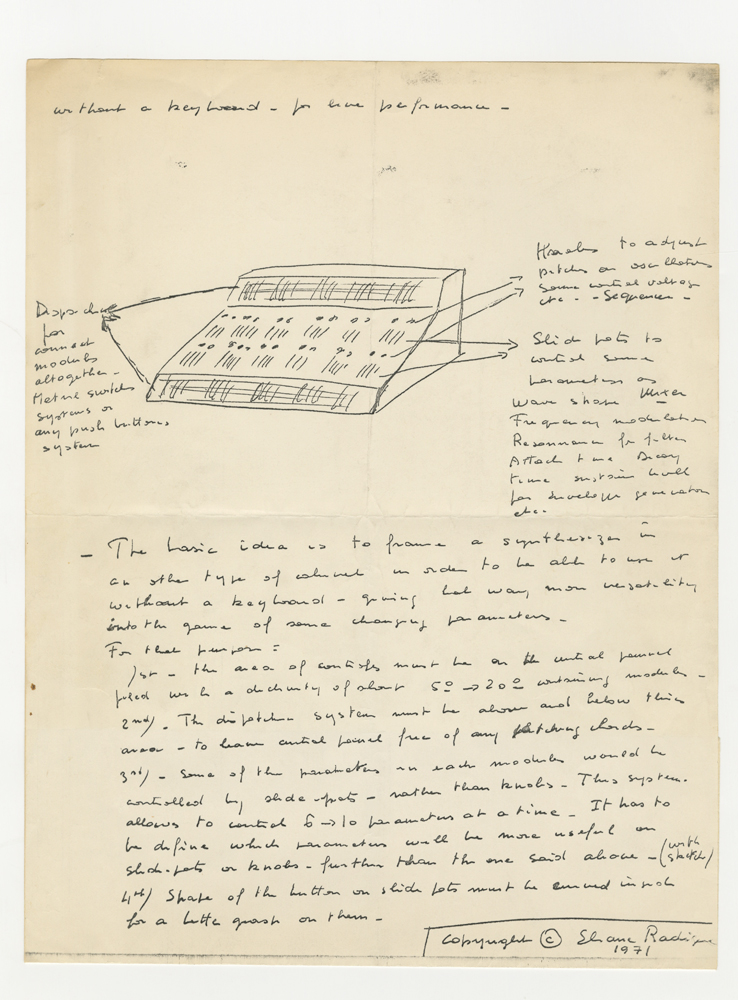 without a keyboard - for live performance -
Knobs to adjust
pitches on oscillators
some control voltage
etc. - Sequencer -
Dispatching
for
connect
modules
altogether -
switches
systems or
any push buttons
system
Slide pots to
control some
parameters as
Wave shape Mixer
Frequency modulation
Resonnance for filter
Attack time Decay
time sustain level
for envelope generation
etc.
- The basic idea is to frame a synthesizer in
an other type of cabinet in order to be able to use it
without a keyboard - giving that way more versatility
into the game of some changing parameters -
For that purpose :
1st - the area of controls must be on the central pannel
fixed with a declivity of about 5° → 20° containing modules -
2nd) - The dispatching system must be above and below this
area - to leave central panel free of any patching chords -
3rd) - Some of the parameters in each modules would be
controlled by slide-pots - rather than knobs - This system
allows to control 6 → 10 parameters at a time - It has to
be define which parameters will be more useful on
slide-pots or knobs - further than the one said above - (with
sketch)
4th) Shape of the button on slide pots must be curved inside
for a better grasp on them -
Copyright © Eliane Radigue
1971